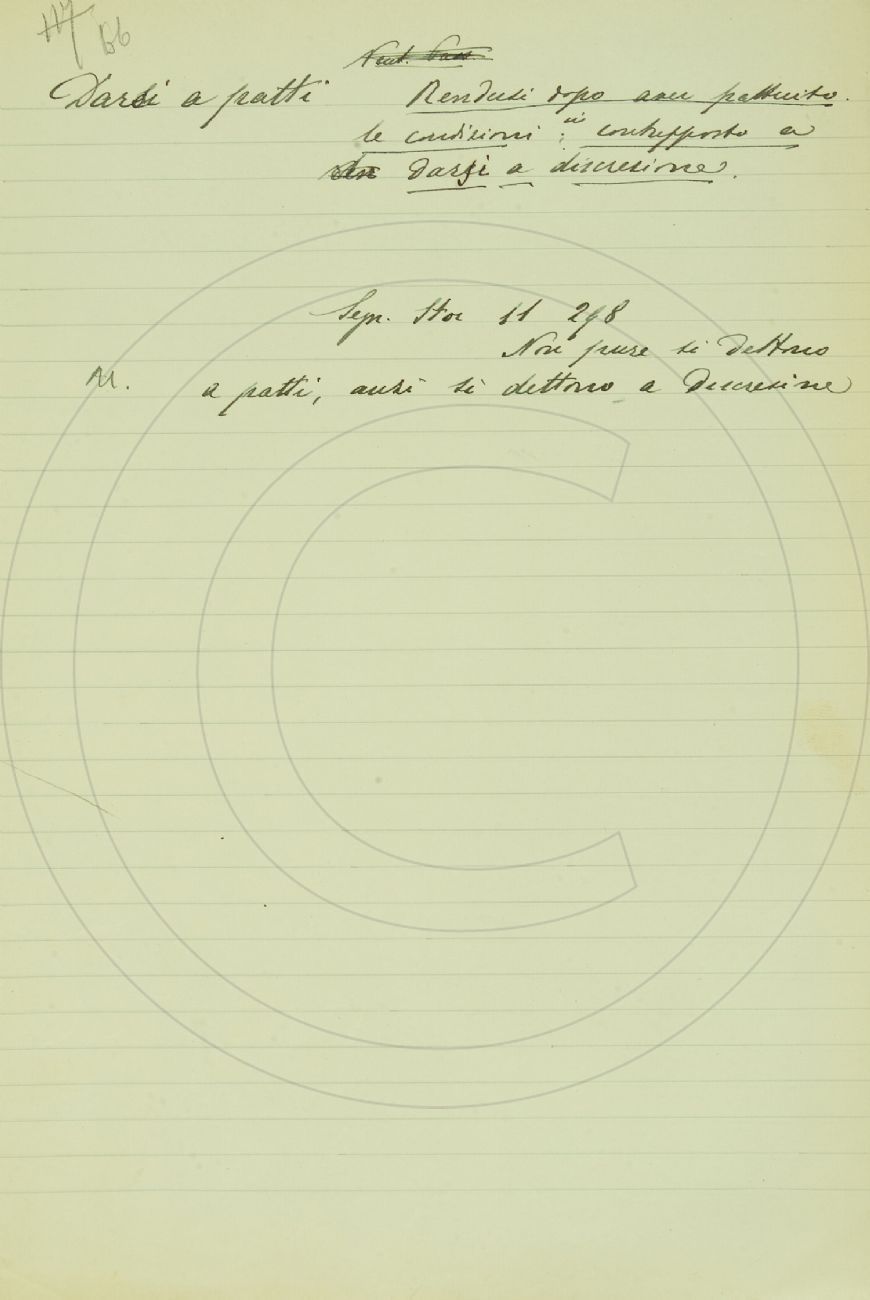 117 Bb
Neut. Pass.
Darsi a patti Rendersi dopo aver pattuito
le condizioni : contrapposto a
Darsi a discrezione.
Segn. Stor 11 298
Non pure si dettono
M. a patti, anzi si dettono a Discrezione